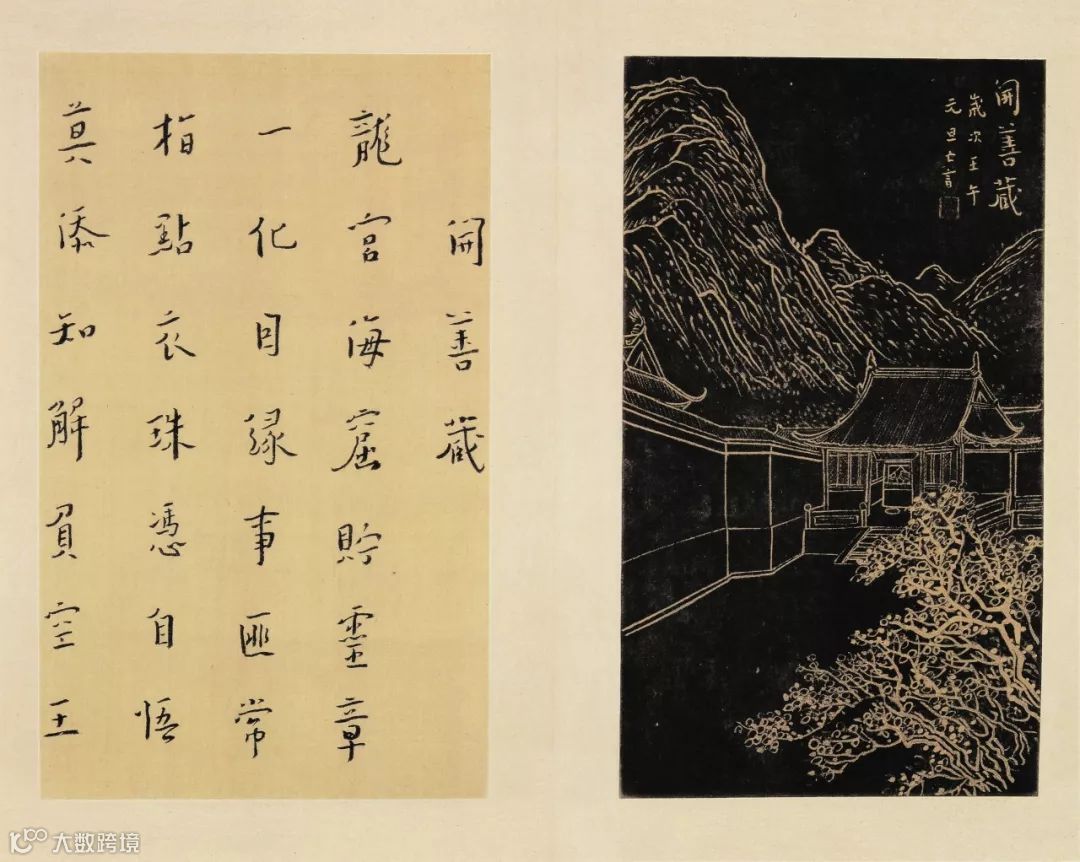 開善藏
歲次壬午
元旦
開善藏
龍宮海窟貯靈章
一化因緣事匪常
指點衣珠憑自悟
莫添知解負空王
大数跨境